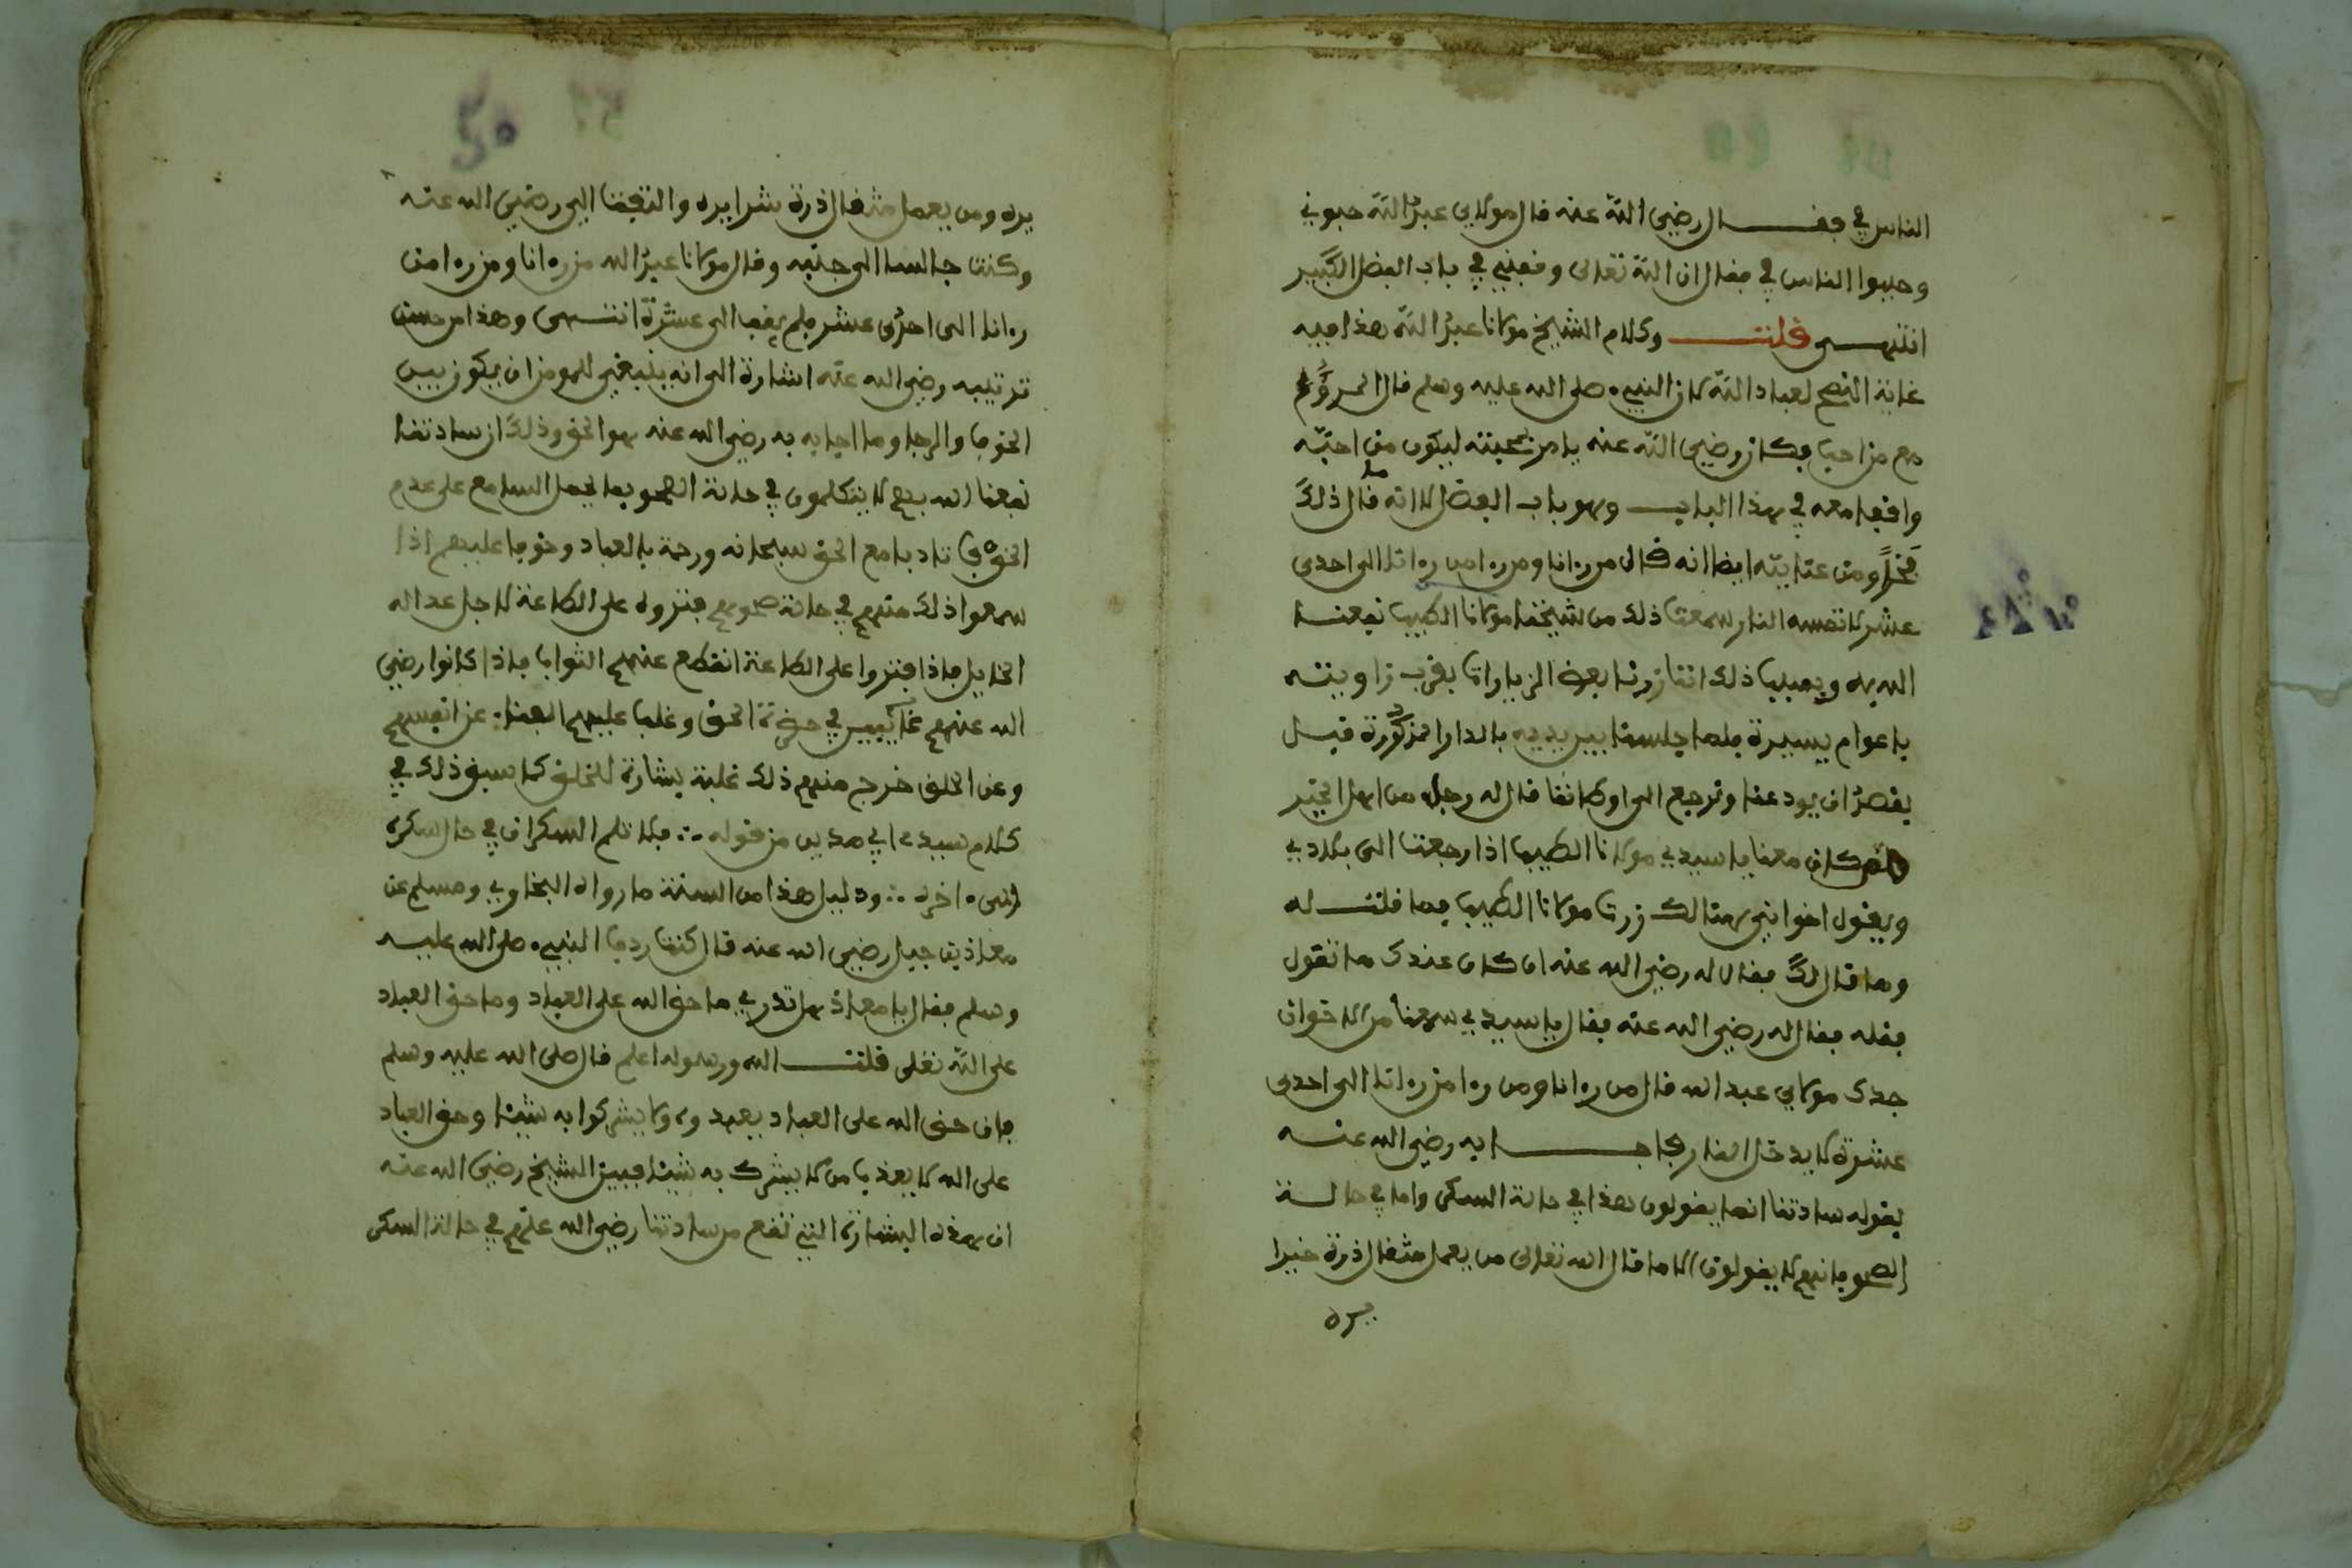 الناس في فقــــال رضي الله عنه قال مولاي عبد الله حبوني
وحببوا الناس في فقال ان الله تعلى وقفني في باب الفضل الكبير
انتهـــى قلتـــ وكلام الشيخ مولانا عبد الله هذا فيه
غاية النصح لعباد الله لان النبيء صلى الله عليه وسلم قال المرؤ
مع من احب فكان رضي الله عنه يامر بمحبته ليكون من احبه
واقفا معه في هذا البابـــ وهو باب الفضل لا انه ما قال ذلك
فخرا ومن عنايته ايضا انه قال من رءانا ومن رءا من رءانا الى احدى
عشر لا تمسه النار سمعت ذلك من شيخنا مولانا الطيب نفعنا
الله به وسبب ذلك اننا زرنا بعض الزيارات بقرب زاويته
باعوام يسيرة فلما جلسنا بين يديه بالدار المذكورة قبل
بقصد ان يودعنا ونرجع الى اوطاننا قال له رجل من اهل الخير
كان معنا يا سيدي مولانا الطيب اذا رجعت الى بلادي
ويقول اخواني هنالك زرت مولانا الطيب فما قلتـــ له
وما قال لك فقال له رضي الله عنه ان كان عندك ما تقول
فقله فقال له رضي الله عنه فقال يا سيدي سمعنا من الاخوان
جدك مولاي عبد الله قال من رءانا ومن رءا من رءانا الى احدى
عشرة لا يدخل النار فاجــــابه رضي الله عنه
بقوله ساداتنا انما يقولون هذا في حالة السكر واما في حالة
الصحو فانهم لا يقولون الا ما قال الله تعلى من يعمل مثقال ذرة خيرا
يره
يره ومن يعمل مثقال ذرة شرا يره والتفت الي رضي الله عنه
وكنت جالسا الى جنبه وقال مولانا عبد الله من رءانا ومن رءا من
رءانا الى احدى عشر فلم يقف الى عشرة انتـــهى وهذا من حسن
ترتيبه رضي الله عنه اشارة الى انه ينبغي للمومن ان يكون بين
الخوف والرجا وما اجابه به رضي الله عنه هو الحق وذلك ان ساداتنا
نفعنا الله بهم لا يتكلمون في حالة الصحو بما يحمل السامع على عدم
الخوف تادبا مع الحق سبحانه ورحمة بالعباد وخوفا عليهم اذا
سمعوا ذلك منهم في حالة صحوهم فتروا على الطاعة لاجل عداله
الخايل فاذا فتروا على الطاعة انقطع عنهم الثواب فاذا كانوا رضي
الله عنهم غايبين في حضرة الحق وغلب عليهم الفنا عن انفسهم
وعن الخلق خرج منهم ذلك غلبة بشارة للخلق كما سبق ذلك في
كلام سيدي ابي مدين من قوله ∴ فلا تلم السكران في حال سكره
انتهى ءاخره ∴ ودليل هذا من السنة ما رواه البخاري ومسلم عن
معاذ بن جبل رضي الله عنه قال كنت رديف النبيء صلى الله عليه
وسلم فقال يا معاذ هل تدري ما حق الله على العباد وما حق العباد
على الله تعلى قلتـــ الله ورسوله اعلم قال صلى الله عليه وسلم
فان حق الله على العباد يعبدوه ولا يشركوا به شيئا وحق العباد
على الله لا يعذب من لا يشرك به شيئا فبين الشيخ رضي الله عنه
ان هذه البشارة التي تقع من ساداتنا رضي الله عنهم في حالة السكر